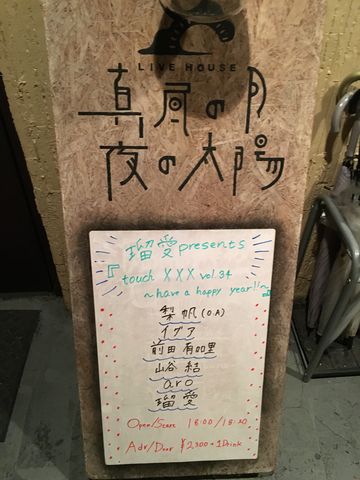 LIVE HOUSE
真昼の月
夜の太陽
瑠愛 presents
『touch XXX vol.34
~have a happy year!!~』
梨帆(O.A)
イグア
前田有加里
山谷結
aro
瑠愛
Open/Start 18:00/18:30
Adv/Door ¥2,300+1Drink